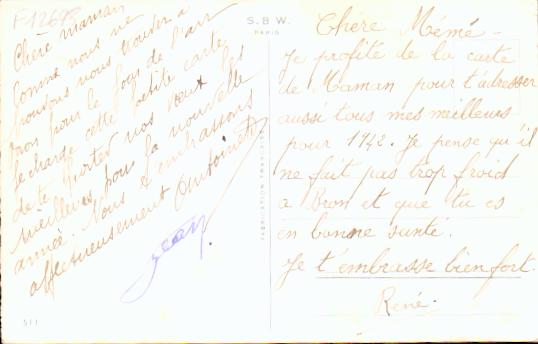 F12698
Chère maman
Comme nous ne
pouvons nous trouver à
Bron pour le jour de l'an
je charge cette petite carte
de te porter nos vœux les
meilleurs pour la nouvelle
année. Nous t'embrassons
affectueusement Antoinette
Jean
S.B.W.
PARIS
FABRICATION FRANÇAISE
Chère Mémé -
Je profite de la carte
de Maman pour t'adresser
aussi tous mes meilleurs
pour 1942. Je pense qu'il
ne fait pas trop froid
a Bron et que tu es
en bonne santé.
Je t'embrasse bien fort.
René.
511